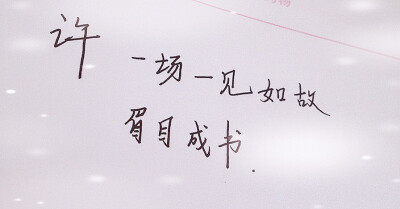 许
一场一见如故
眉目成书.